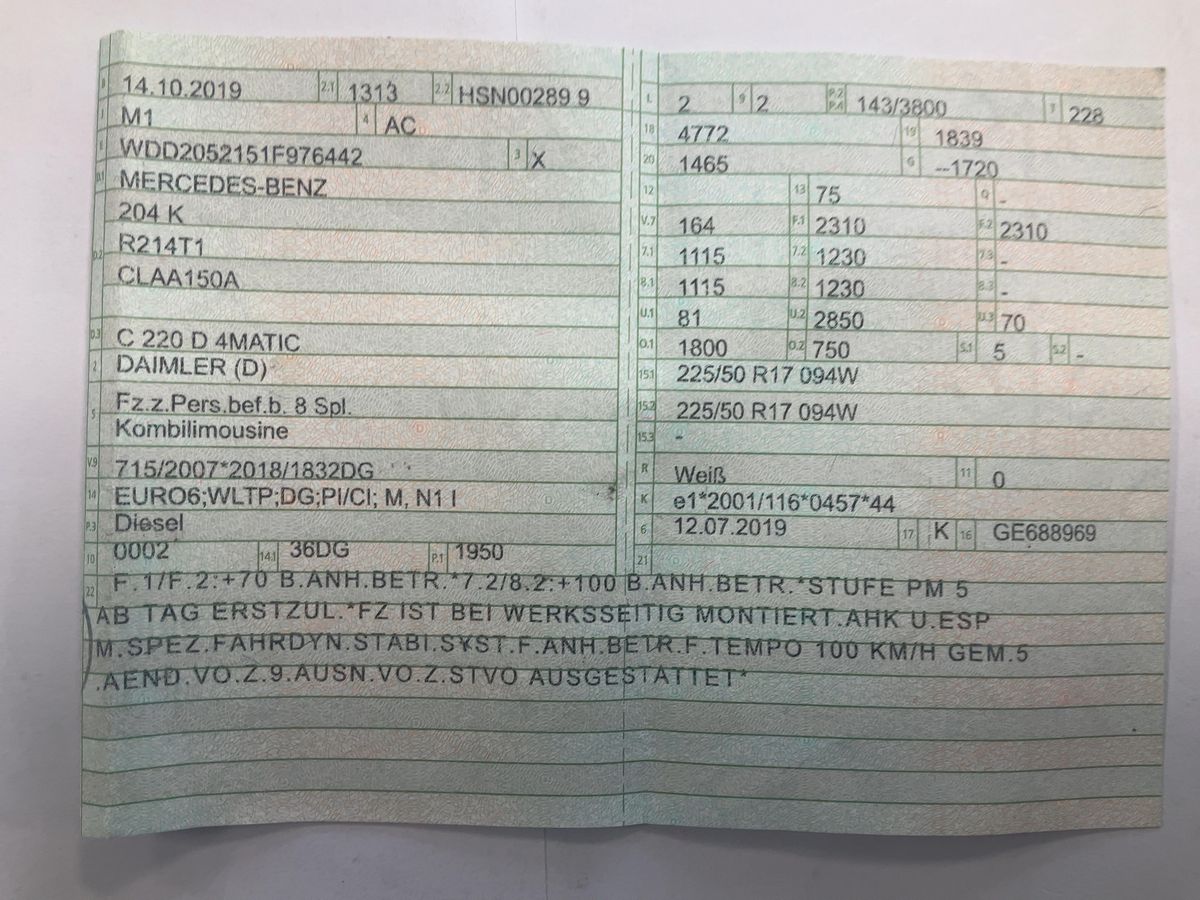 B 14.10.2019 2.1 1313 2.2 HSN00289 9
J M1 4 AC
E WDD2052151F976442 3 X
D.1 MERCEDES-BENZ
204 K
D.2 R214T1
CLAA150A
D.3 C 220 D 4MATIC
2 DAIMLER (D)
5 Fz.z.Pers.bef.b. 8 Spl.
Kombilimousine
V.9 715/2007*2018/1832DG
14 EURO6;WLTP;DG;PI/CI; M, N1 I
P.3 Diesel
10 0002 14.1 36DG P.1 1950
L 2 9 2 P.2 P.4 143/3800 T 228
18 4772 19 1839
20 1465 G --1720
12 13 75 Q -
V.7 164 F.1 2310 F.2 2310
7.1 1115 7.2 1230 7.3 -
8.1 1115 8.2 1230 8.3 -
U.1 81 U.2 2850 U.3 70
O.1 1800 O.2 750 S.1 5 S.2 -
15.1 225/50 R17 094W
15.2 225/50 R17 094W
15.3 -
R Weiß 11 0
K e1*2001/116*0457*44
6 12.07.2019 17 K 16 GE688969
21
22 F.1/F.2:+70 B.ANH.BETR.*7.2/8.2:+100 B.ANH.BETR.*STUFE PM 5
AB TAG ERSTZUL.*FZ IST BEI WERKSSEITIG MONTIERT.AHK U.ESP
M.SPEZ.FAHRDYN.STABI.SYST.F.ANH.BETR.F.TEMPO 100 KM/H GEM.5
.AEND.VO.Z.9.AUSN.VO.Z.STVO AUSGESTATTET*